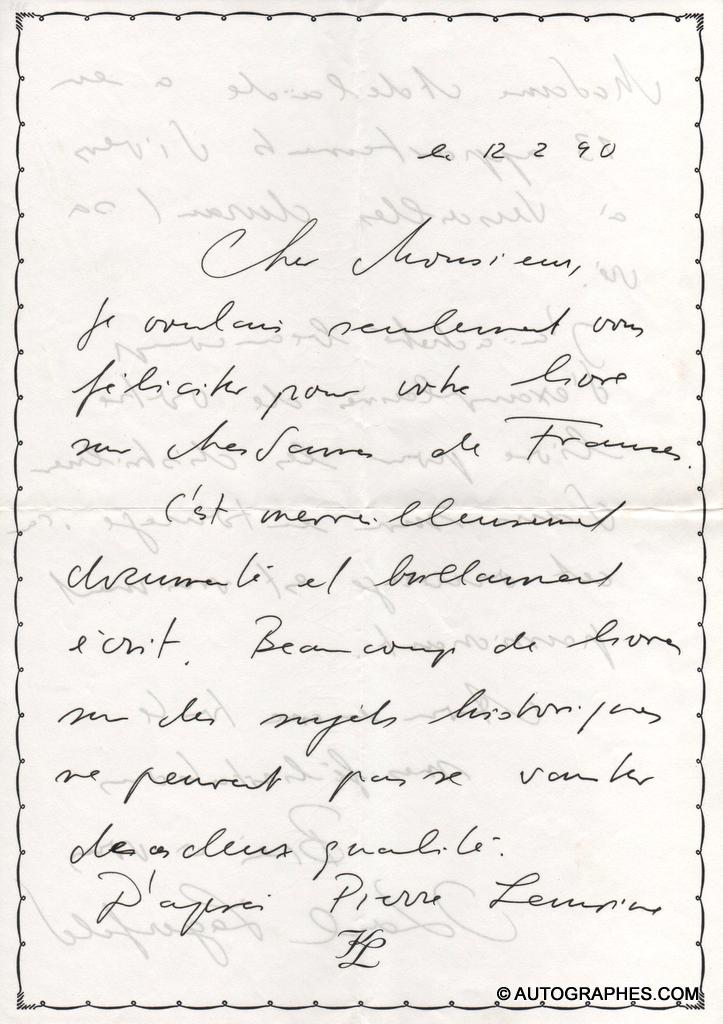 le 12 2 90
Cher Monsieur,
Je voulais seulement vous
féliciter pour votre livre
sur Mesdames de France.
C'est merveilleusement
documenté et brillament
écrit. Beaucoup de livres
sur des sujets historiques
ne peuvent pas se vanter
de ces deux qualité.
D'après Pierre Lemoine
KL
© AUTOGRAPHES.COM